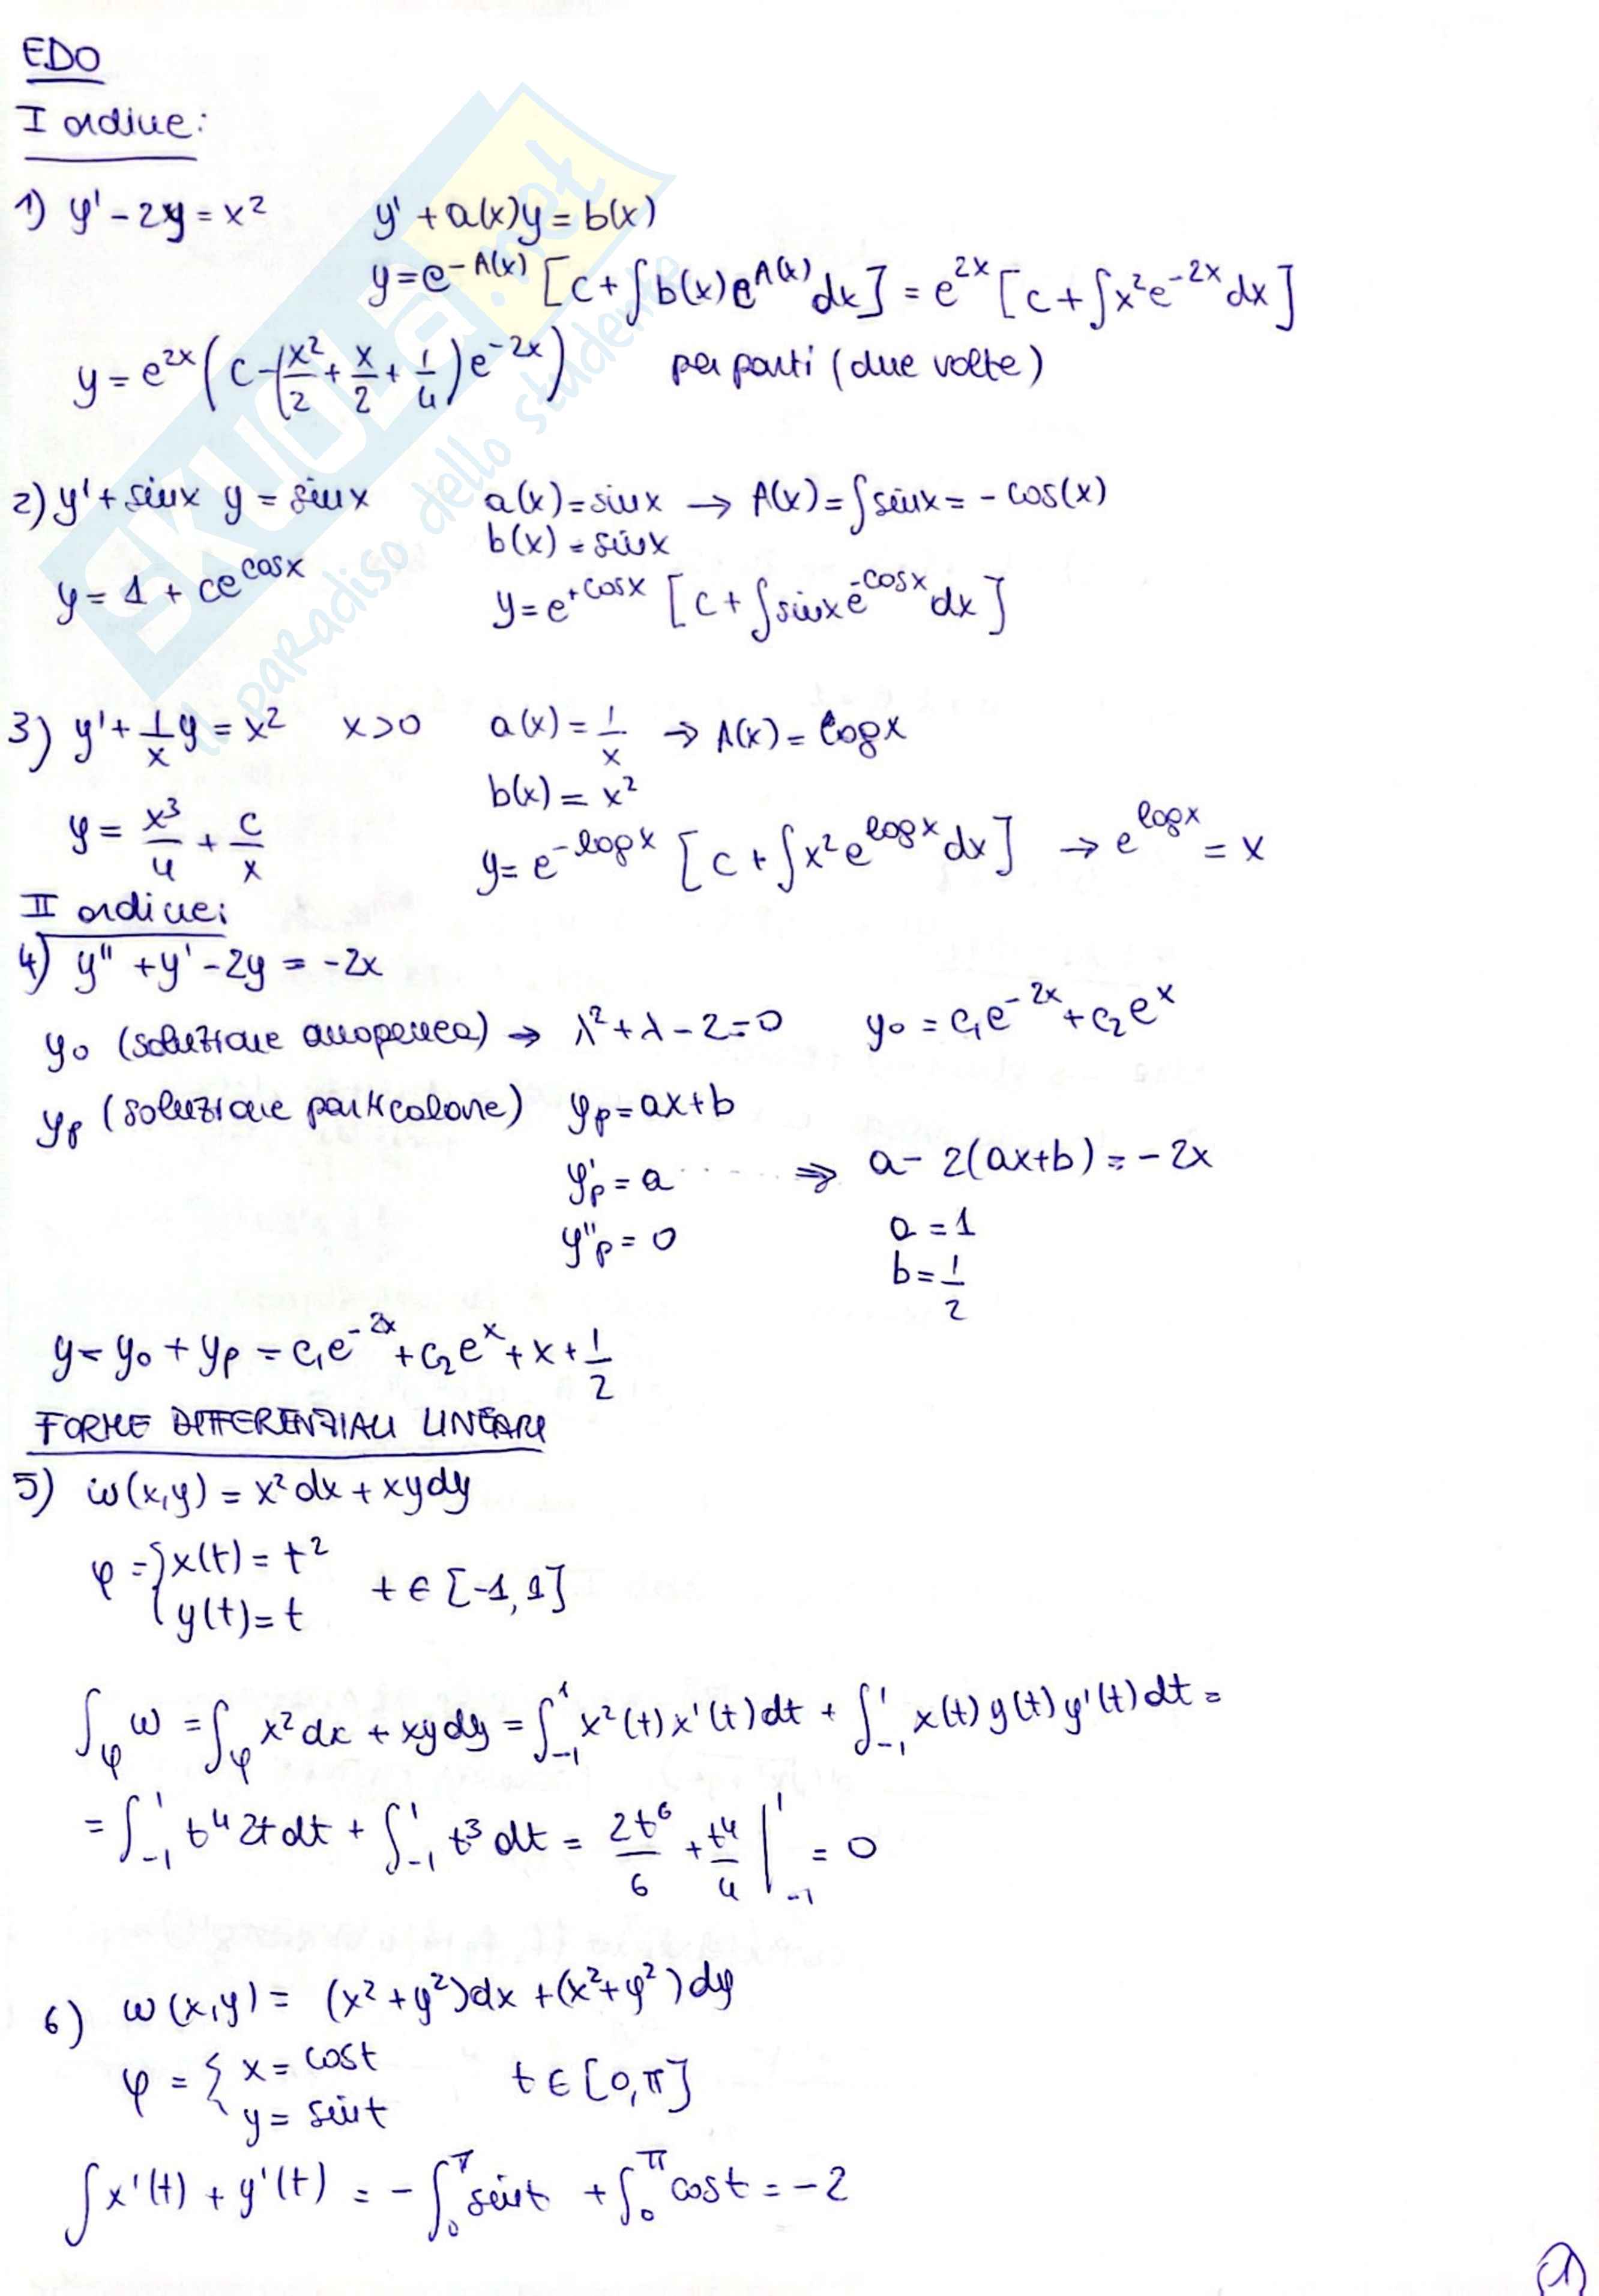 EDO
I ordine:
1) y' - 2y = x² y' + a(x)y = b(x)
y = e^{-A(x)} [c + ∫b(x)e^{A(x)}dx] = e^{2x} [c + ∫x²e^{-2x}dx]
y = e^{2x} (c - (x²/2 + x/2 + 1/4)e^{-2x}) per parti (due volte)
2) y' + sinx y = sinx a(x) = sinx → A(x) = ∫sinx = - cos(x)
b(x) = sinx
y = 1 + ce^{cosx} y = e^{+cosx} [c + ∫sinxe^{-cosx}dx]
3) y' + 1/x y = x² x>0 a(x) = 1/x → A(x) = logx
b(x) = x²
y = x³/4 + c/x y = e^{-logx} [c + ∫x²e^{logx}dx] → e^{logx} = x
II ordine:
4) y'' + y' - 2y = -2x
y₀ (soluzione omogenea) → λ² + λ - 2 = 0 y₀ = c₁e^{-2x} + c₂e^x
yp (soluzione particolare) yp = ax+b
y'p = a ⇒ a - 2(ax+b) = -2x
y''p = 0 a = 1
b = 1/2
y = y₀ + yp = c₁e^{-2x} + c₂e^x + x + 1/2
FORME DIFFERENZIALI LINEARI
5) ω(x,y) = x²dx + xydy
φ = { x(t) = t²
y(t) = t t ∈ [-1,1]
∫_φ ω = ∫_φ x²dx + xydy = ∫_{-1}^1 x²(t)x'(t)dt + ∫_{-1}^1 x(t)y(t)y'(t)dt =
= ∫_{-1}^1 t⁴2tdt + ∫_{-1}^1 t³dt = 2t⁶/6 + t⁴/4 |_{-1}^1 = 0
6) ω(x,y) = (x²+y²)dx + (x²+y²)dy
φ = { x = cost
y = sint t ∈ [0,π]
∫x'(t) + y'(t) = - ∫_0^π sint + ∫_0^π cost = -2
1
SKUOLA.net
il paradiso dello studente